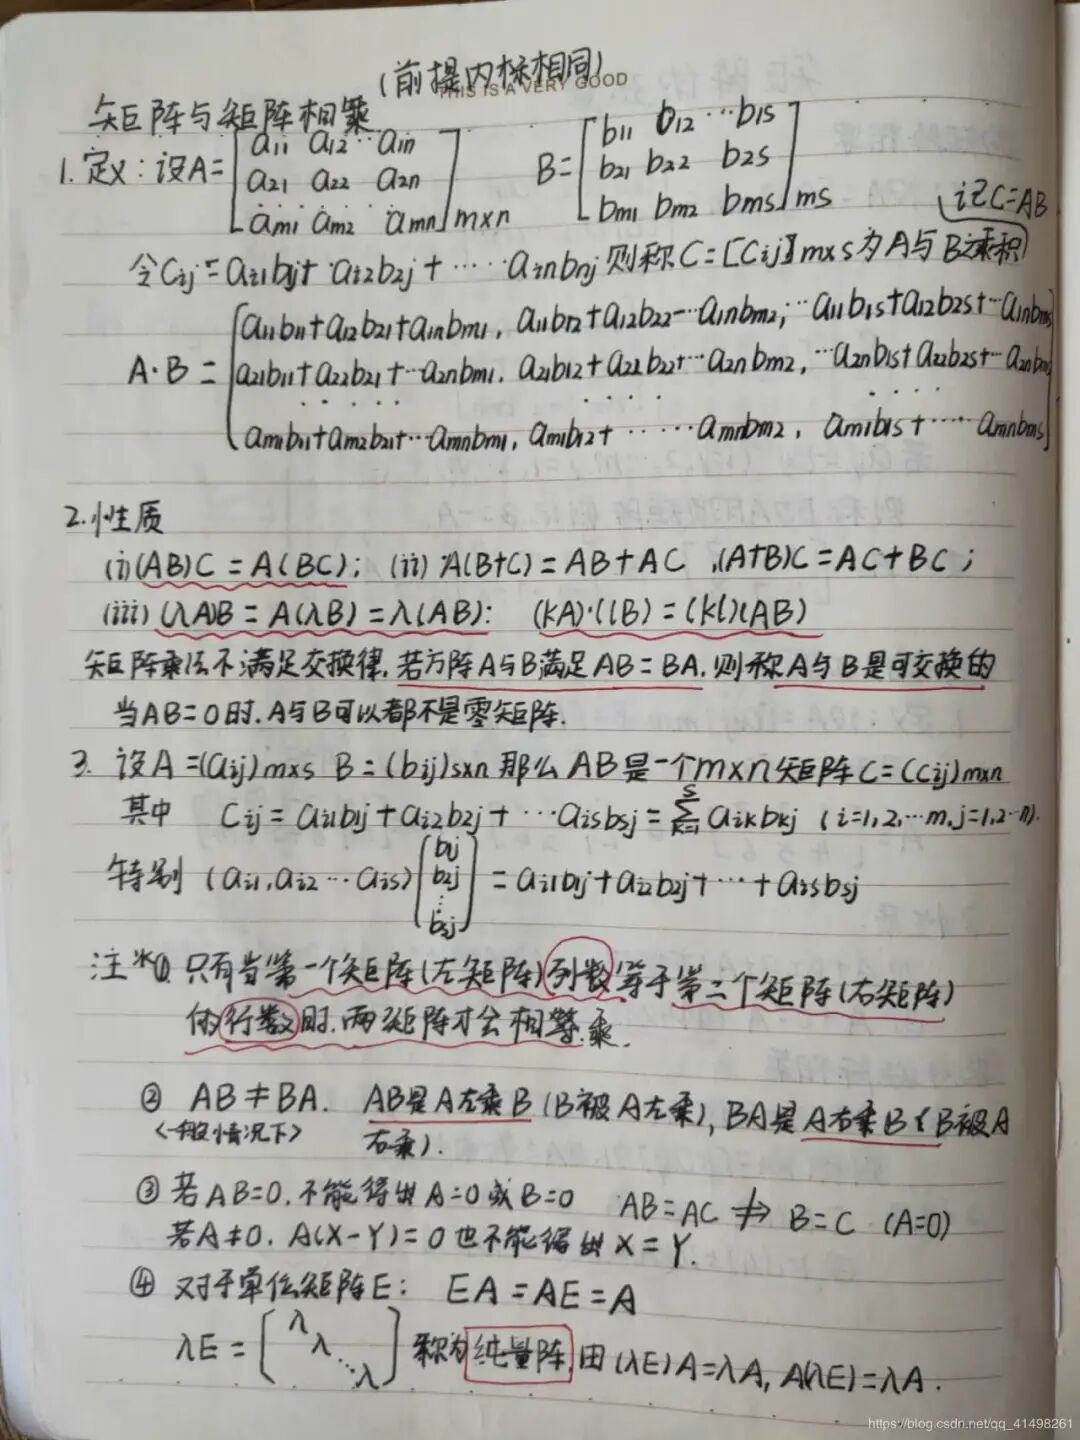 (前提内标相同)
THIS IS A VERY GOOD
矩阵与矩阵相乘
1. 定义: 设A= [a11 a12 ... a1n
a21 a22 a2n
am1 am2 amn] m×n B= [b11 b12 ... b1s
b21 b22 b2s
bm1 bm2 bms] ms
记C=AB
令Cij = ai1b1j + ai2b2j + ...... ainbnj 则称C=[Cij]m×s为A与B乘积
A·B = [a11b11+a12b21+a1nbm1, a11b12+a12b22...a1nbm2, ...a11b1s+a12b2s+...a1nbms
a21b11+a22b21+...a2nbm1. a21b12+a22b22+...a2nbm2, ...a2nb1s+a22b2s+...a2nbms
am1b11+am2b21+...amnbm1, am1b12+......amnbm2, am1b1s+......amnbms]
2.性质
(i)(AB)C = A(BC); (ii) A(B+C) = AB+AC ,(A+B)C = AC+BC ;
(iii) (λA)B = A(λB) = λ(AB): (kA)·(lB) = (kl)(AB)
矩阵乘法不满足交换律, 若方阵A与B满足AB=BA. 则称A与B是可交换的
当AB=0时. A与B可以都不是零矩阵.
3. 设A=(aij)m×s B=(bij)s×n 那么 AB是一个m×n矩阵C=(Cij)m×n
其中 Cij = ai1b1j + ai2b2j + ...aisbsj = ∑(k=1..s) aikbkj (i=1,2,...m, j=1,2...n).
特别 (ai1, ai2 ... ais) [b1j b2j ⋮ bsj] = ai1b1j + ai2b2j + ... + aisbsj
注*① 只有当第一个矩阵(左矩阵)列数等于第二个矩阵(右矩阵)
的行数时. 两矩阵才会相乘.
② AB ≠ BA. AB是A左乘B (B被A左乘), BA是A右乘B (B被A
<一般情况下> 右乘).
③ 若AB=0. 不能得出A=0或B=0 AB=AC ⇏ B=C (A=0)
若A≠0. A(X-Y)=0也不能得出X=Y.
④ 对于单位矩阵E: EA=AE=A
λE = [λ λ ⋱ λ] 称为纯量阵. 由(λE)A=λA, A(λE)=λA.
https://blog.csdn.net/qq_41498261